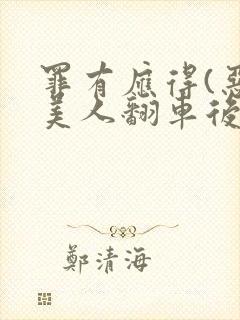 罪有應得(惡
美人翻車後
鄭清海